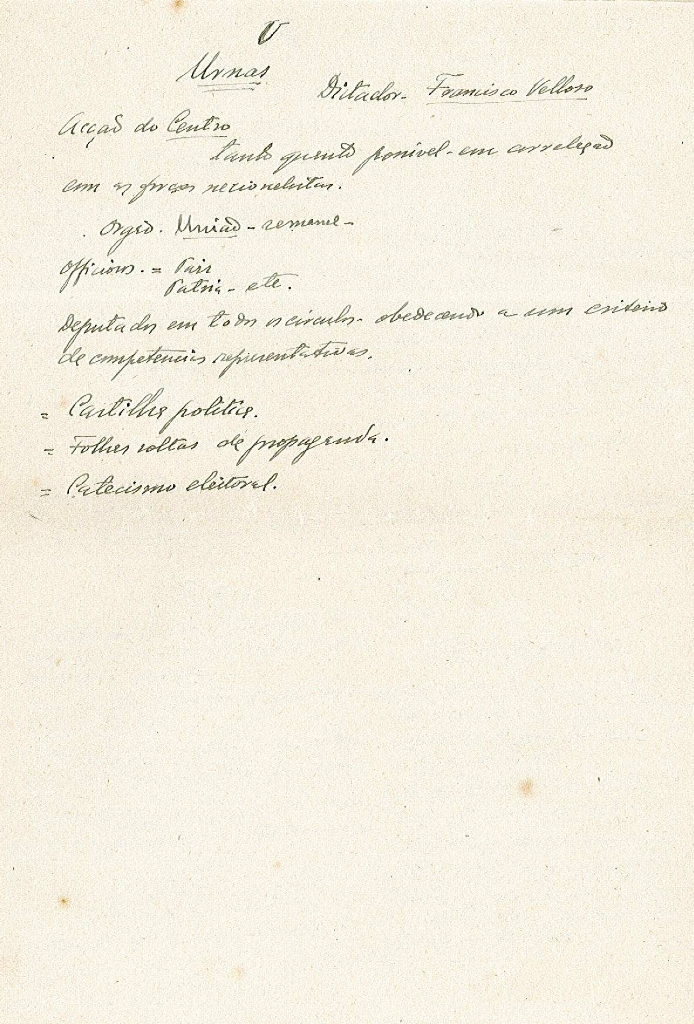 V
Urnas
Dictador - Francisco Velloso
Acção do Centro
tanto quanto possivel - em correlação
com as forças nacionalistas.
Orgão. União - semanal -
Officiosos. = Paiz
Patria - etc.
Deputados em todos os circulos - obedecendo a um criterio
de competencias representativas.
= Cartilha politica.
= Folhas soltas de propaganda.
= Catecismo eleitoral.